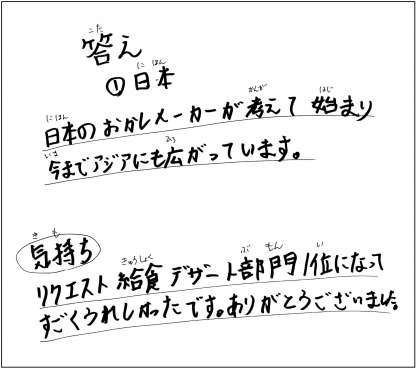 こた
答え
に ほん
①日本
にほん かんが はじ
日本のおかしメーカーが考えて 始まり
いま ひろ
今までアジアにも広がっています。
き も
気持ち
きゅうしょく ぶ もん い
リクエスト給食デザート部門1位になって
すごくうれしかったです。ありがとうございました。